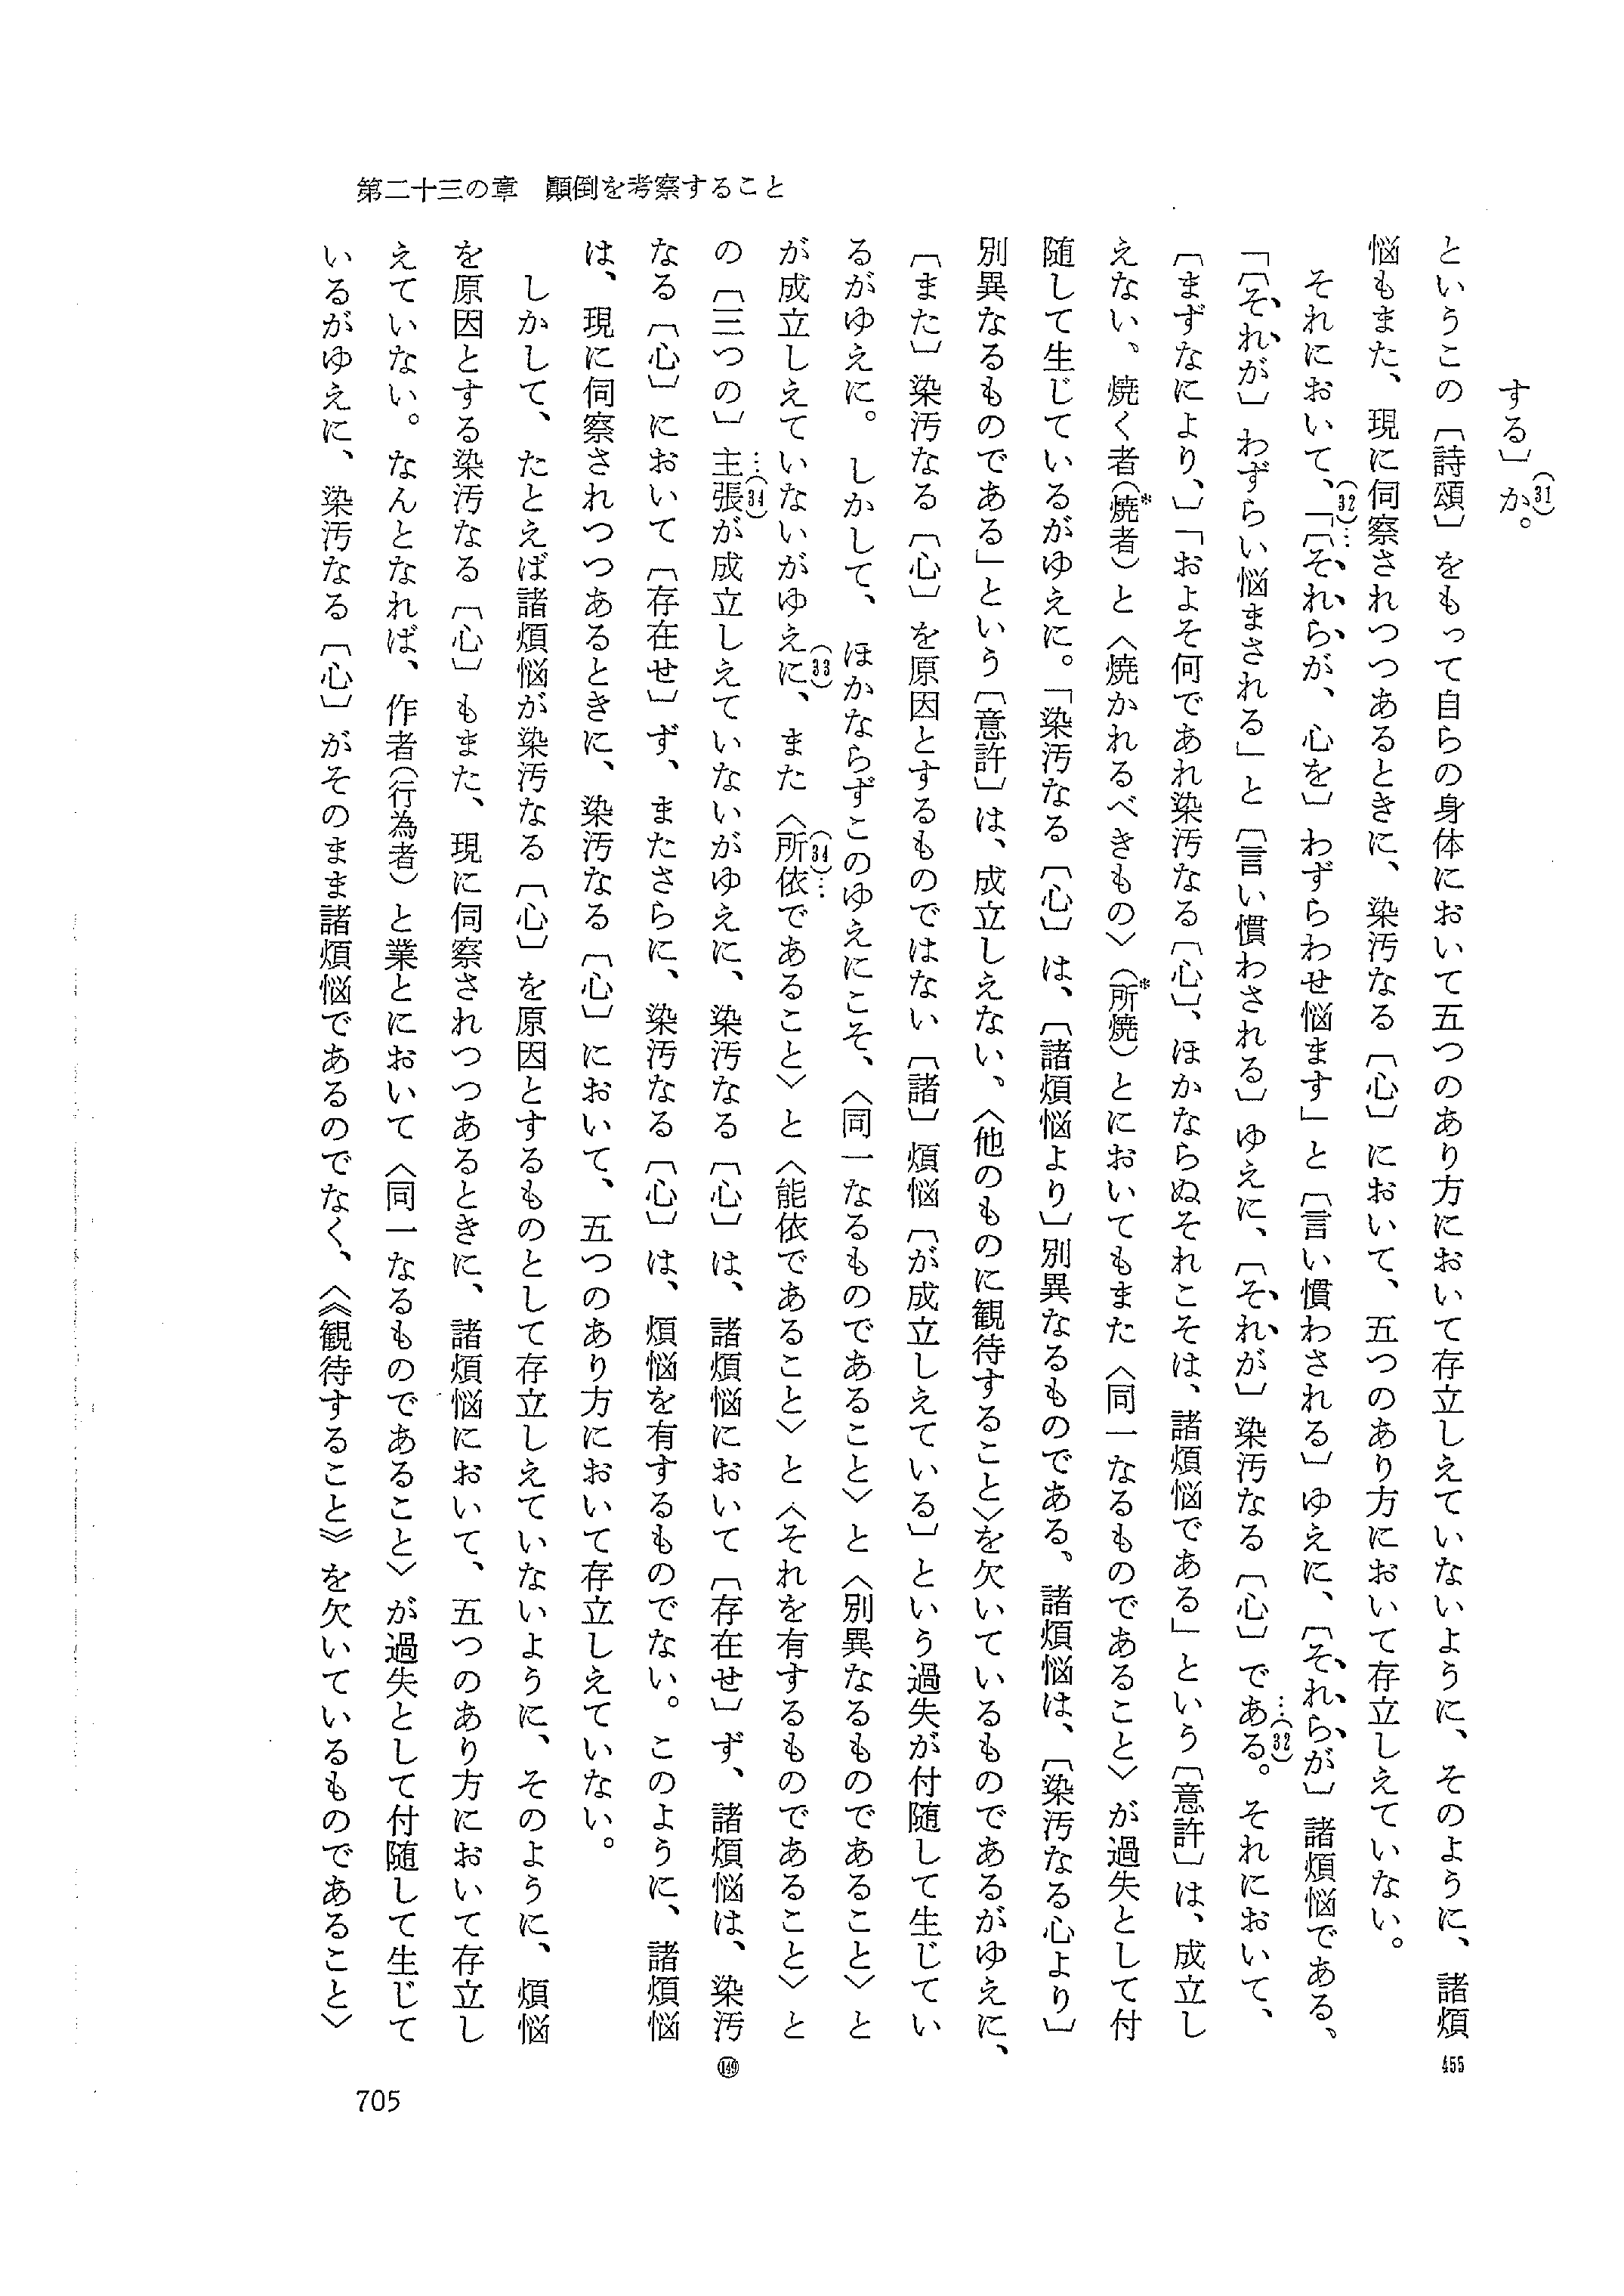 第二十三の章　顚倒を考察すること
する〕か。(31)
というこの〔詩頌〕をもって自らの身体において五つのあり方において存立しえていないように、そのように、諸煩 455
悩もまた、現に伺察されつつあるときに、染汚なる〔心〕において、五つのあり方において存立しえていない。
それにおいて、(32)…「〔それらが、心を〕わずらわせ悩ます」と〔言い慣わされる〕ゆえに、〔それらが〕諸煩悩である、
「〔それが〕わずらい悩まされる」と〔言い慣わされる〕ゆえに、〔それが〕染汚なる〔心〕である…(32)。それにおいて、
〔まずなにより、〕「およそ何であれ染汚なる〔心〕、ほかならぬそれこそは、諸煩悩である」という〔意許〕は、成立し
えない、焼く者(*焼者)と〈焼かれるべきもの〉(*所焼)とにおいてもまた〈同一なるものであること〉が過失として付
随して生じているがゆえに。「染汚なる〔心〕は、〔諸煩悩より〕別異なるものである、諸煩悩は、〔染汚なる心より〕
別異なるものである」という〔意許〕は、成立しえない、〈他のものに観待すること〉を欠いているものであるがゆえに、
〔また〕染汚なる〔心〕を原因とするものではない〔諸〕煩悩〔が成立しえている〕という過失が付随して生じてい
るがゆえに。しかして、ほかならずこのゆえにこそ、〈同一なるものであること〉と〈別異なるものであること〉と
が成立しえていないがゆえに(33)、また(34)…〈所依であること〉と〈能依であること〉と〈それを有するものであること〉と
の〔三つの〕主張…(34)が成立しえていないがゆえに、染汚なる〔心〕は、諸煩悩において〔存在せ〕ず、諸煩悩は、染汚 149
なる〔心〕において〔存在せ〕ず、またさらに、染汚なる〔心〕は、煩悩を有するものでない。このように、諸煩悩
は、現に伺察されつつあるときに、染汚なる〔心〕において、五つのあり方において存立しえていない。
しかして、たとえば諸煩悩が染汚なる〔心〕を原因とするものとして存立しえていないように、そのように、煩悩
を原因とする染汚なる〔心〕もまた、現に伺察されつつあるときに、諸煩悩において、五つのあり方において存立し
えていない。なんとなれば、作者(行為者)と業とにおいて〈同一なるものであること〉が過失として付随して生じて
いるがゆえに、染汚なる〔心〕がそのまま諸煩悩であるのでなく、〈《観待すること》を欠いているものであること〉
705